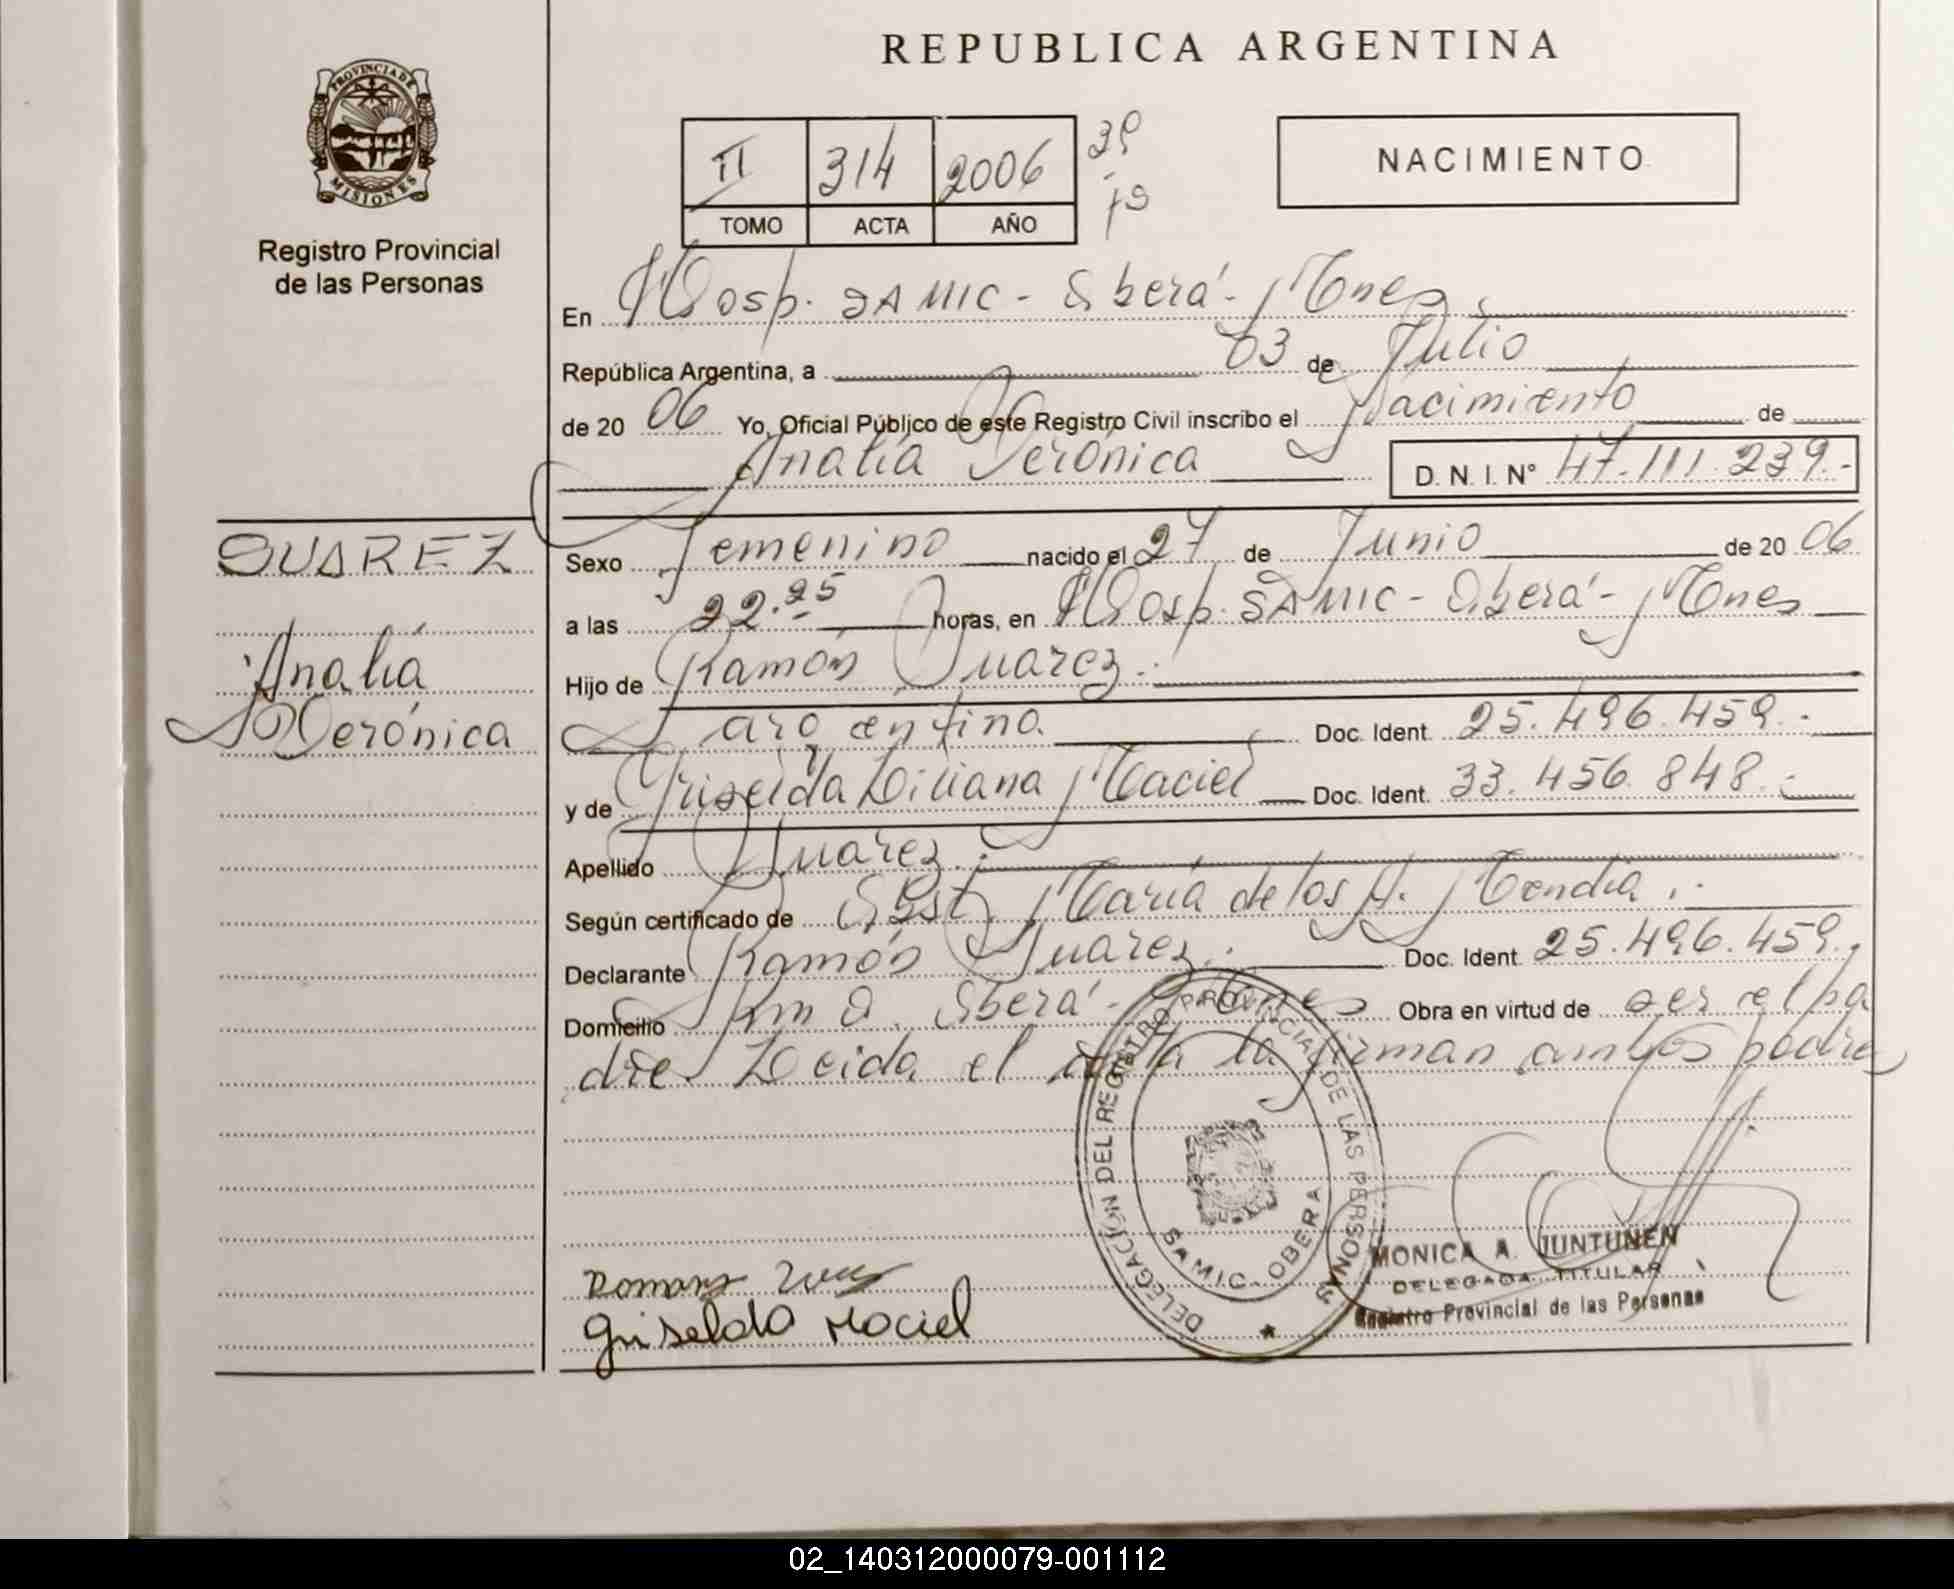 REPUBLICA ARGENTINA
PROVINCIA DE MISIONES
Registro Provincial
de las Personas
II 314 2006
TOMO ACTA AÑO
NACIMIENTO
En Hosp. SAMIC - Oberá - Mnes
República Argentina, a 03 de Julio
de 2006 Yo, Oficial Público de este Registro Civil inscribo el Nacimiento de
Analía Verónica D. N. I. Nº 47.111.239.-
SUAREZ
Analía
Verónica
Sexo Femenino nacido el 27 de Junio de 2006
a las 22.25 horas, en Hosp. SAMIC - Oberá - Mnes
Hijo de Ramón Suarez.
argentino. Doc. Ident. 25.496.459.-
y de Griselda Liliana Maciel Doc. Ident. 33.456.848.-
Apellido Suarez.
Según certificado de Obst. María de los A. Mendia.
Declarante Ramón Suarez. Doc. Ident. 25.496.459.
Domicilio Km 0. Oberá - Mnes Obra en virtud de ser el pa
dre. Leida el acta la firman ambos padres
Griselda Maciel
DELEGACIÓN DEL REGISTRO PROVINCIAL DE LAS PERSONAS
SAMIC - OBERA
MONICA A. JUNTUNEN
DELEGADA TITULAR
Registro Provincial de las Personas
02_140312000079-001112